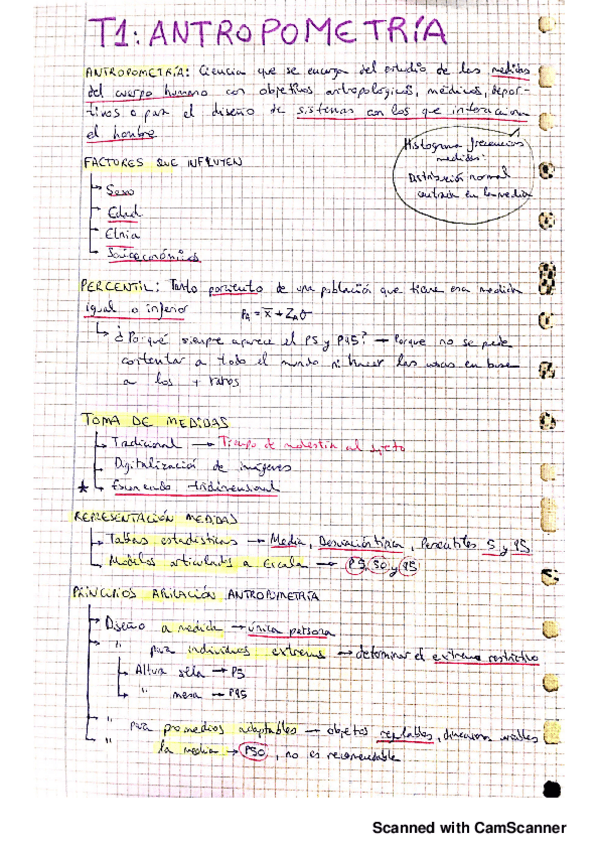 T1: ANTROPOMETRÍA
ANTROPOMETRÍA: Ciencia que se encarga del estudio de las medidas
del cuerpo humano con objetivos antropológicos, médicos, depor-
tivos o para el diseño de sistemas con los que interacciona
el hombre
Histograma frecuencias
medidas:
Distribución normal
centrada en la media
FACTORES QUE INFLUYEN
Sexo
Edad
Etnia
Socioeconómicos
PERCENTIL: Tanto porciento de una población que tiene esa medida
igual o inferior PA = X̄ + ZAσ
¿Por qué siempre aparece el P5 y P95? → Porque no se puede
contentar a todo el mundo ni hacer las cosas en base
a los + raros
TOMA DE MEDIDAS
Tradicional → Tiempo de molestia al sujeto
Digitalización de imágenes
* Escaneado tridimensional
REPRESENTACIÓN MEDIDAS
Tablas estadísticas → Media, Desviación típica, Percentiles 5 y 95
Modelos articulados a escala → P5, 50 y 95
PRINCIPIOS APLICACIÓN ANTROPOMETRÍA
Diseño a medida → única persona
" para individuos extremos → determinar el extremo restrictivo
Altura silla → P5
" mesa → P95
" para promedios adaptables → objetos regulables,
" la media → P50, no es recomendable
Scanned with CamScanner